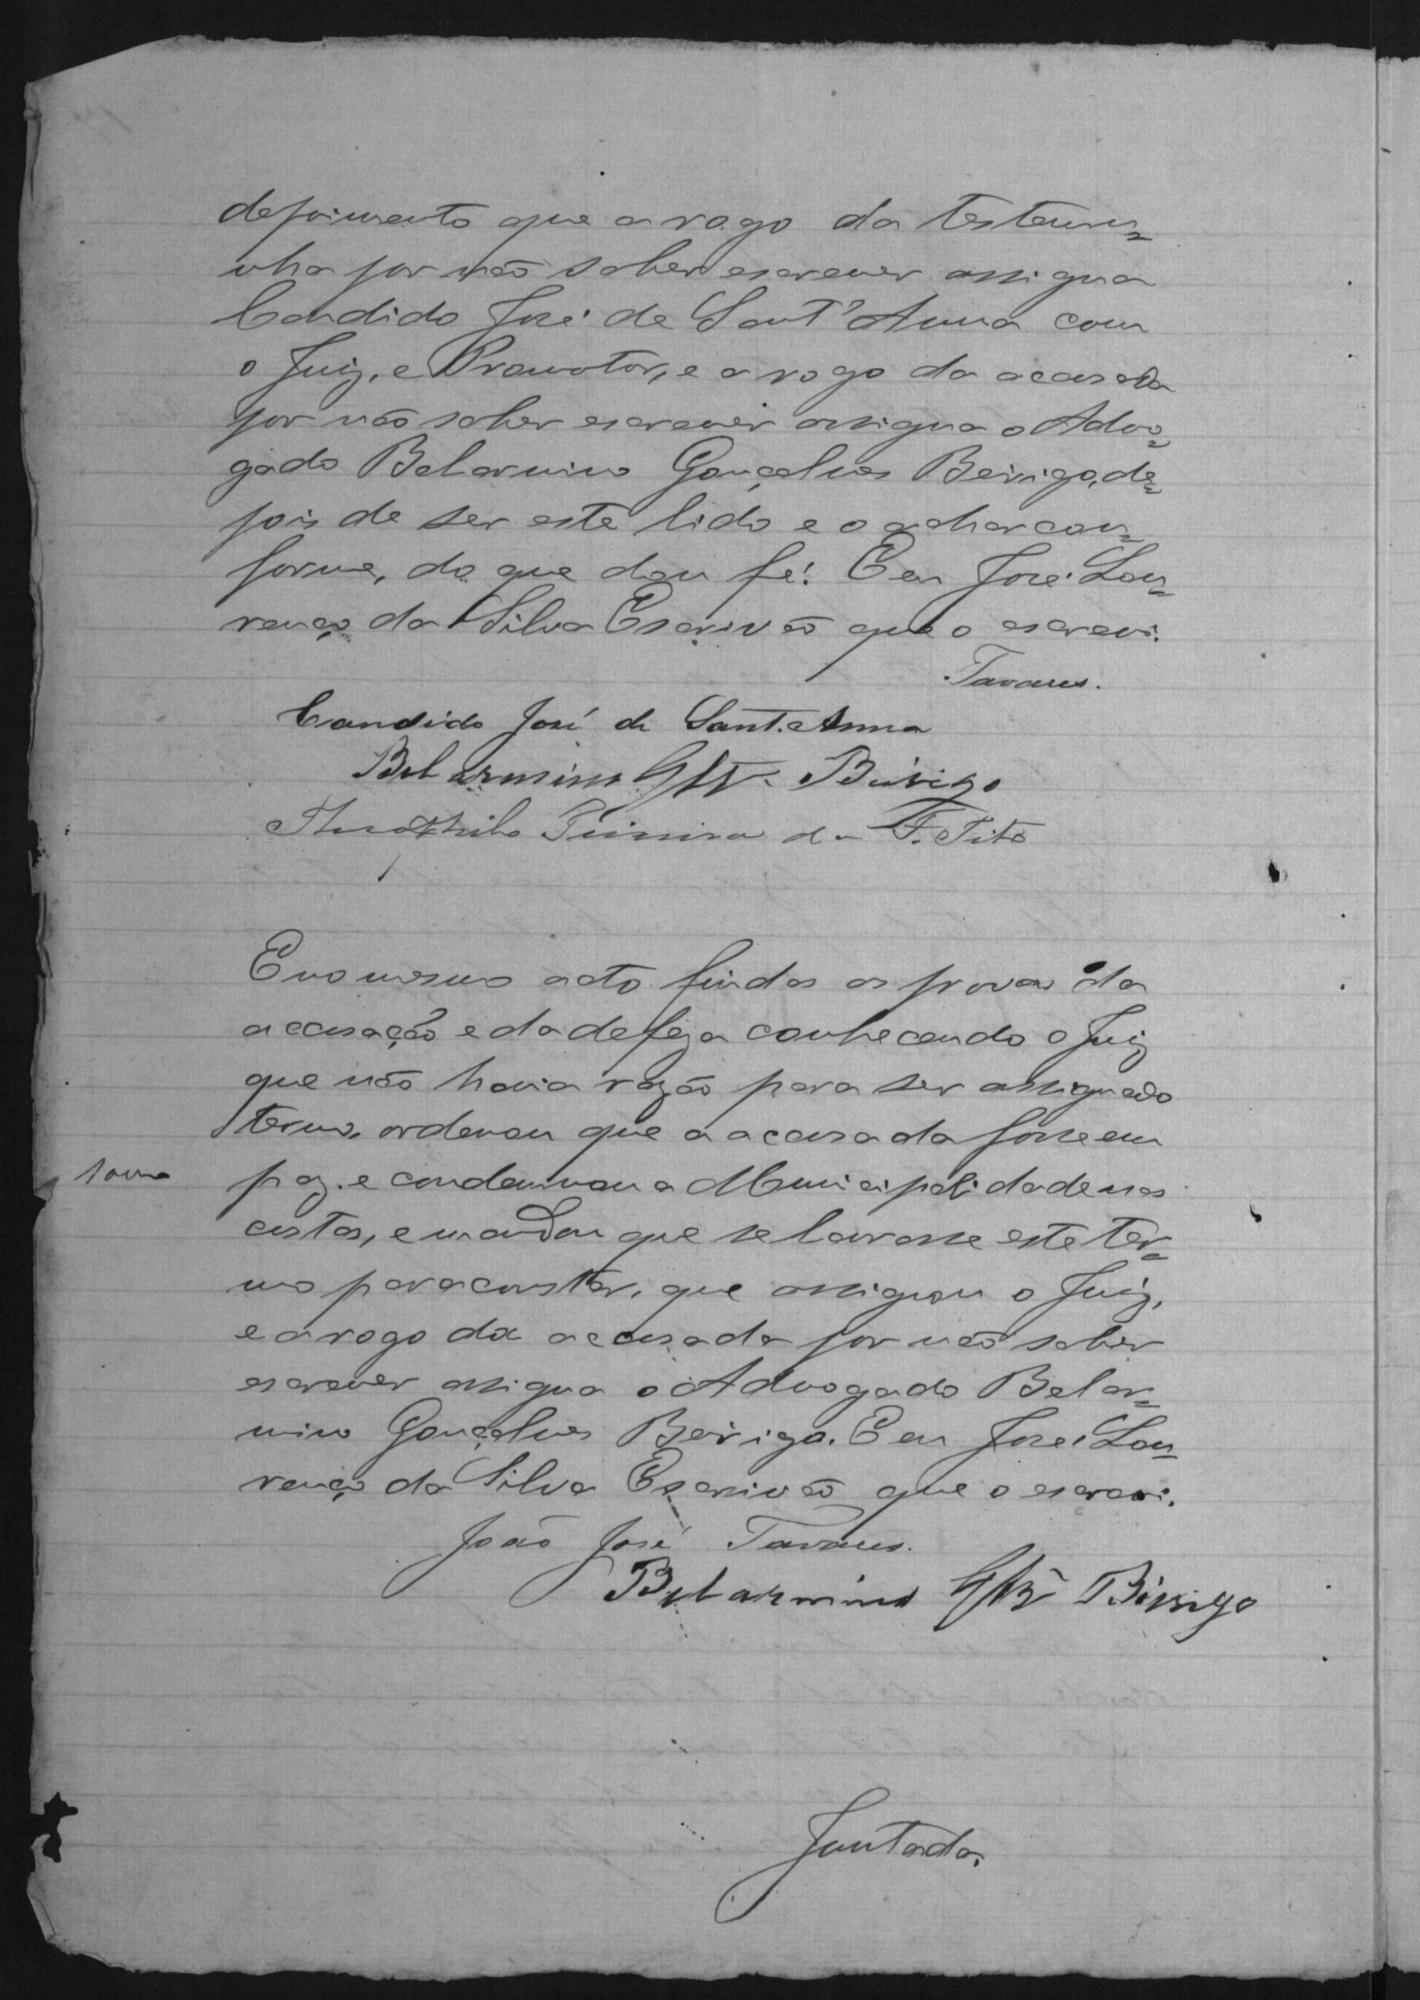 depoimento que a rogo da testemu=
nha por não saber escrever assigna
Candido José de Sant'Anna com
o Juiz, e Promotor, e a rogo da acusada
por não saber escrever assigna o Advo=
gado Belarmino Gonçalves Bevigo, de=
pois de ser este lido e o achar con=
forme, do que dou fé. E eu José Lou=
renço da Silva Escrivão que o escrevi.
Tavares.
Candido José de Sant'Anna
Belarmino Glz Bivigo
Theophilo Teixeira da F. Tito
E no mesmo acto findas as provas da
accusação e da defeza conhecendo o Juiz
que não havia razão para ser assignado
termo, ordenou que a acusada fosse em
paz, e condemnou a Municipalidade nas
custas, e mandou que se lavrasse este ter=
mo para constar, que assignou o Juiz,
e a rogo da acusada por não saber
escrever assigna o Advogado Belar=
mino Gonçalves Bevigo. E eu José Lou=
renço da Silva Escrivão que o escrevi.
João José Tavares.
Belarmino Glz Bivigo
Juntada.